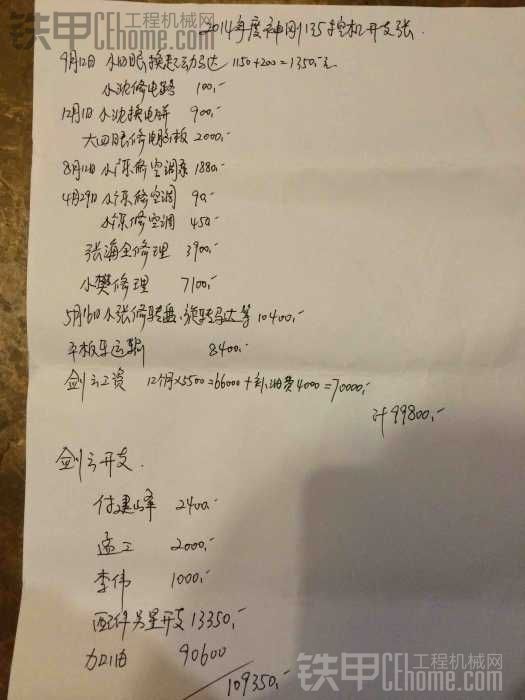 铁甲 工程机械网
CEhome.com
2014年度神刚135挖机开支张
9月12日 小四眼换起动马达 1150+200=1350.-元
小沈修电路 100.-
12月1日 小沈换电瓶 900.-
大四眼修电脑板 2000.-
8月12日 小乐修空调泵 1880.-
4月29日 小乐修空调 90.-
小乐修空调 450.-
张海全修理 3900.-
小樊修理 7100.-
5月16日 小张修转盘、旋转马达等 10400.-
平板车运输 8400.-
剑云工资 12个月×5500=66000+补油费4000=70000.-
计99800.-
剑云开支.
付建峰 2400.-
孟工 2000.-
李伟 1000.-
配件另星开支 13350.-
加油 90600
109350.-
铁甲 工程机械网
CEhome.com